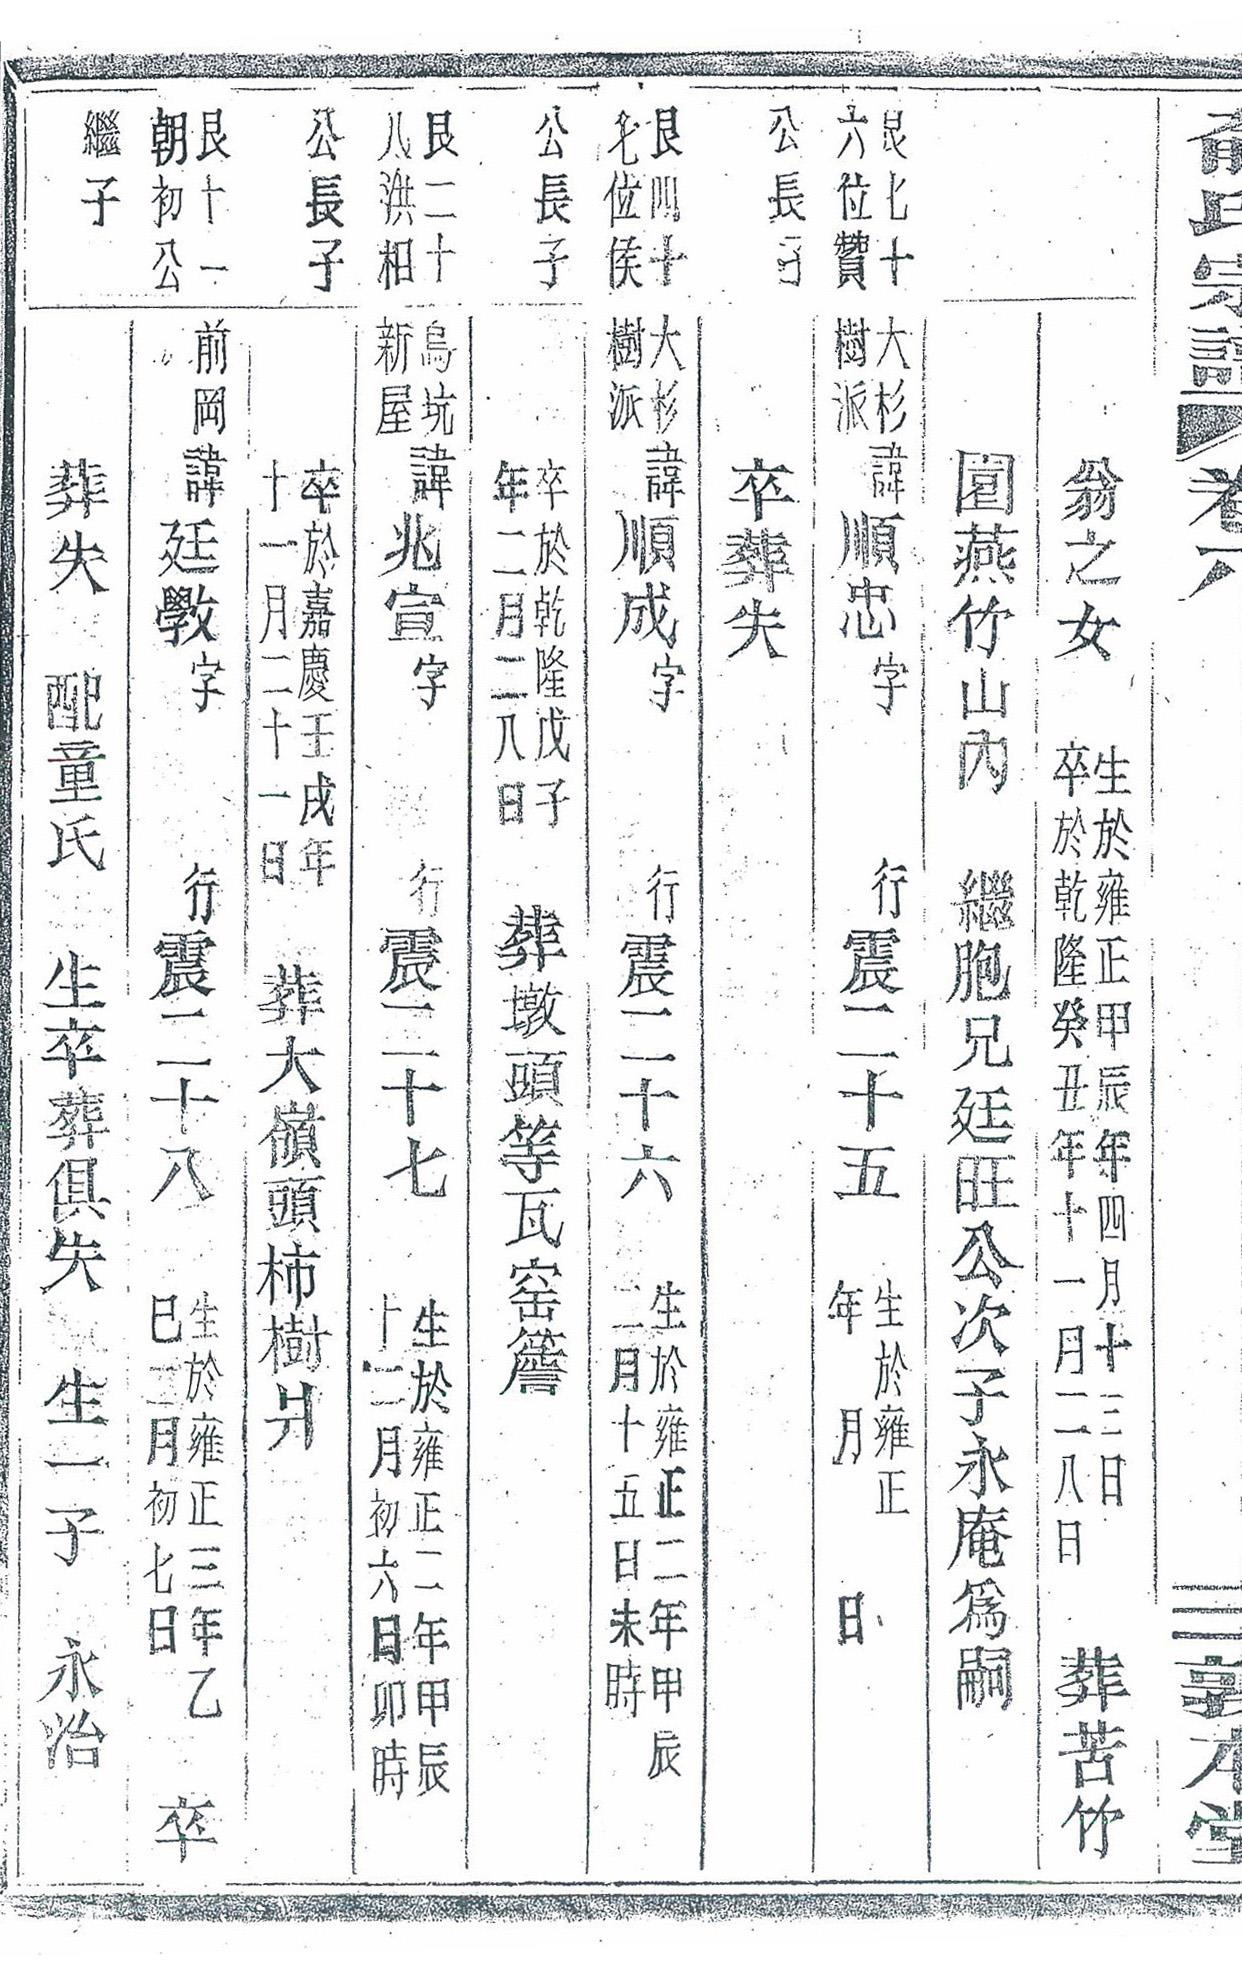 俞氏宗譜 卷六 敦本堂
翁之女 生於雍正甲辰年四月十三日 卒於乾隆癸丑年十一月二八日 葬苦竹
園燕竹山內 繼胞兄廷旺公次子永庵為嗣
艮七十六位贊 大杉樹派 諱順忠 字 行震二二十五 生於雍正 年 月 日
公長子 卒葬失
艮四十七位侯 大杉樹派 諱順成 字 行震二二十六 生於雍正二年甲辰二月十五日未時
公長子 卒於乾隆戊子年二月二八日 葬墩頭等瓦窑簷
艮二十八洪相 烏坑新屋 諱兆宣 字 行震二二十七 生於雍正二年甲辰十二月初六日卯時
公長子 卒於嘉慶壬戌年十一月二十一日 葬大嶺頭柿樹爿
艮十一朝初公 前岡 諱廷斆 字 行震二二十八 生於雍正三年乙巳二月初七日 卒
繼子 葬失 配童氏 生卒葬俱失 生一子 永治